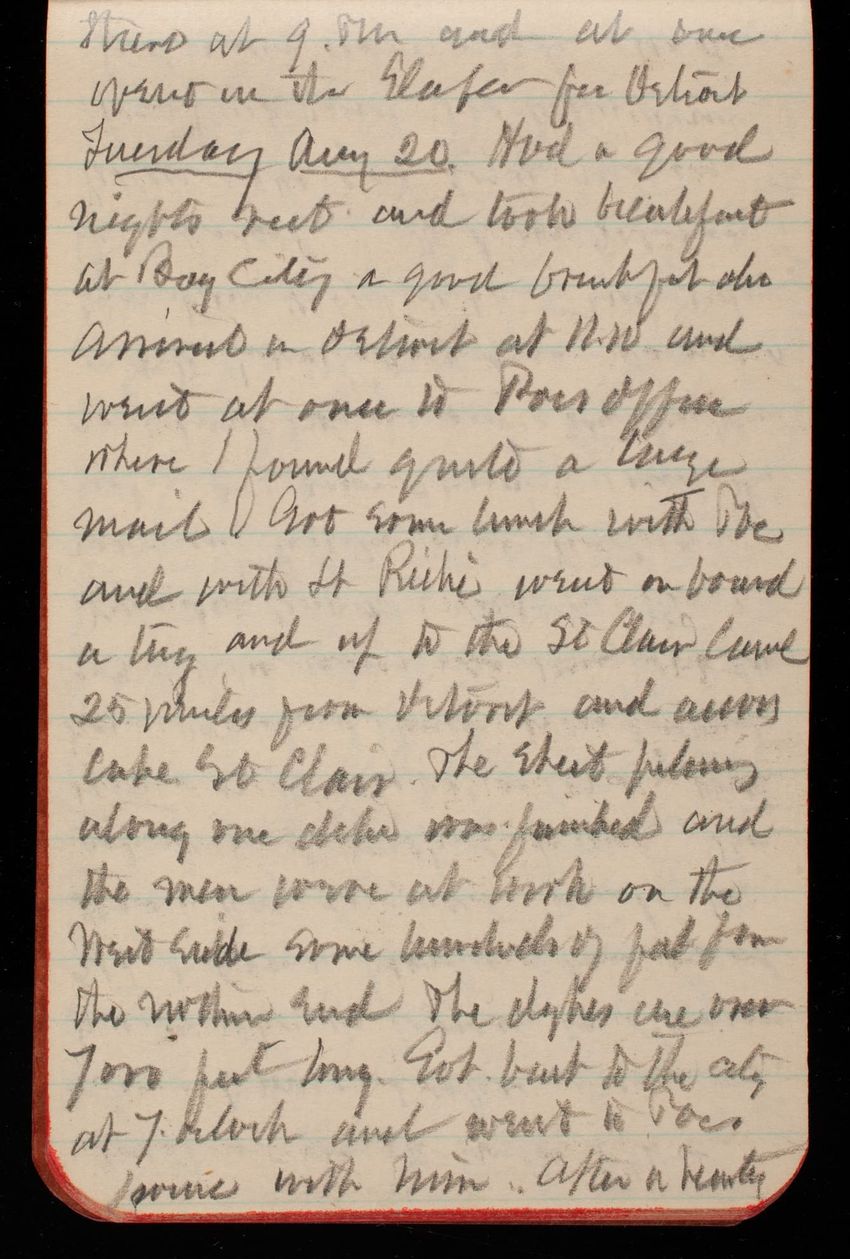 there at 9. PM and at once
went in the Sleeper for Detroit
Tuesday Aug 20. Had a good
nights rest and took breakfast
at Bay City a good breakfast also
Arrived in Detroit at 11.10 and
went at once to Poes Office
where I found quite a large
mail. Got some lunch with Poe
and with Lt went on board
a tug and up to the St Clair Canal
25 miles from Detroit and across
Lake St Clair. The Sheet piling
along one dyke was finished and
the men were at work on the
West side some hundreds of feet from
the northern end The dykes are over
7000 feet long. Got back to the city
at 7. oclock and went to Poes
with him. After a hearty